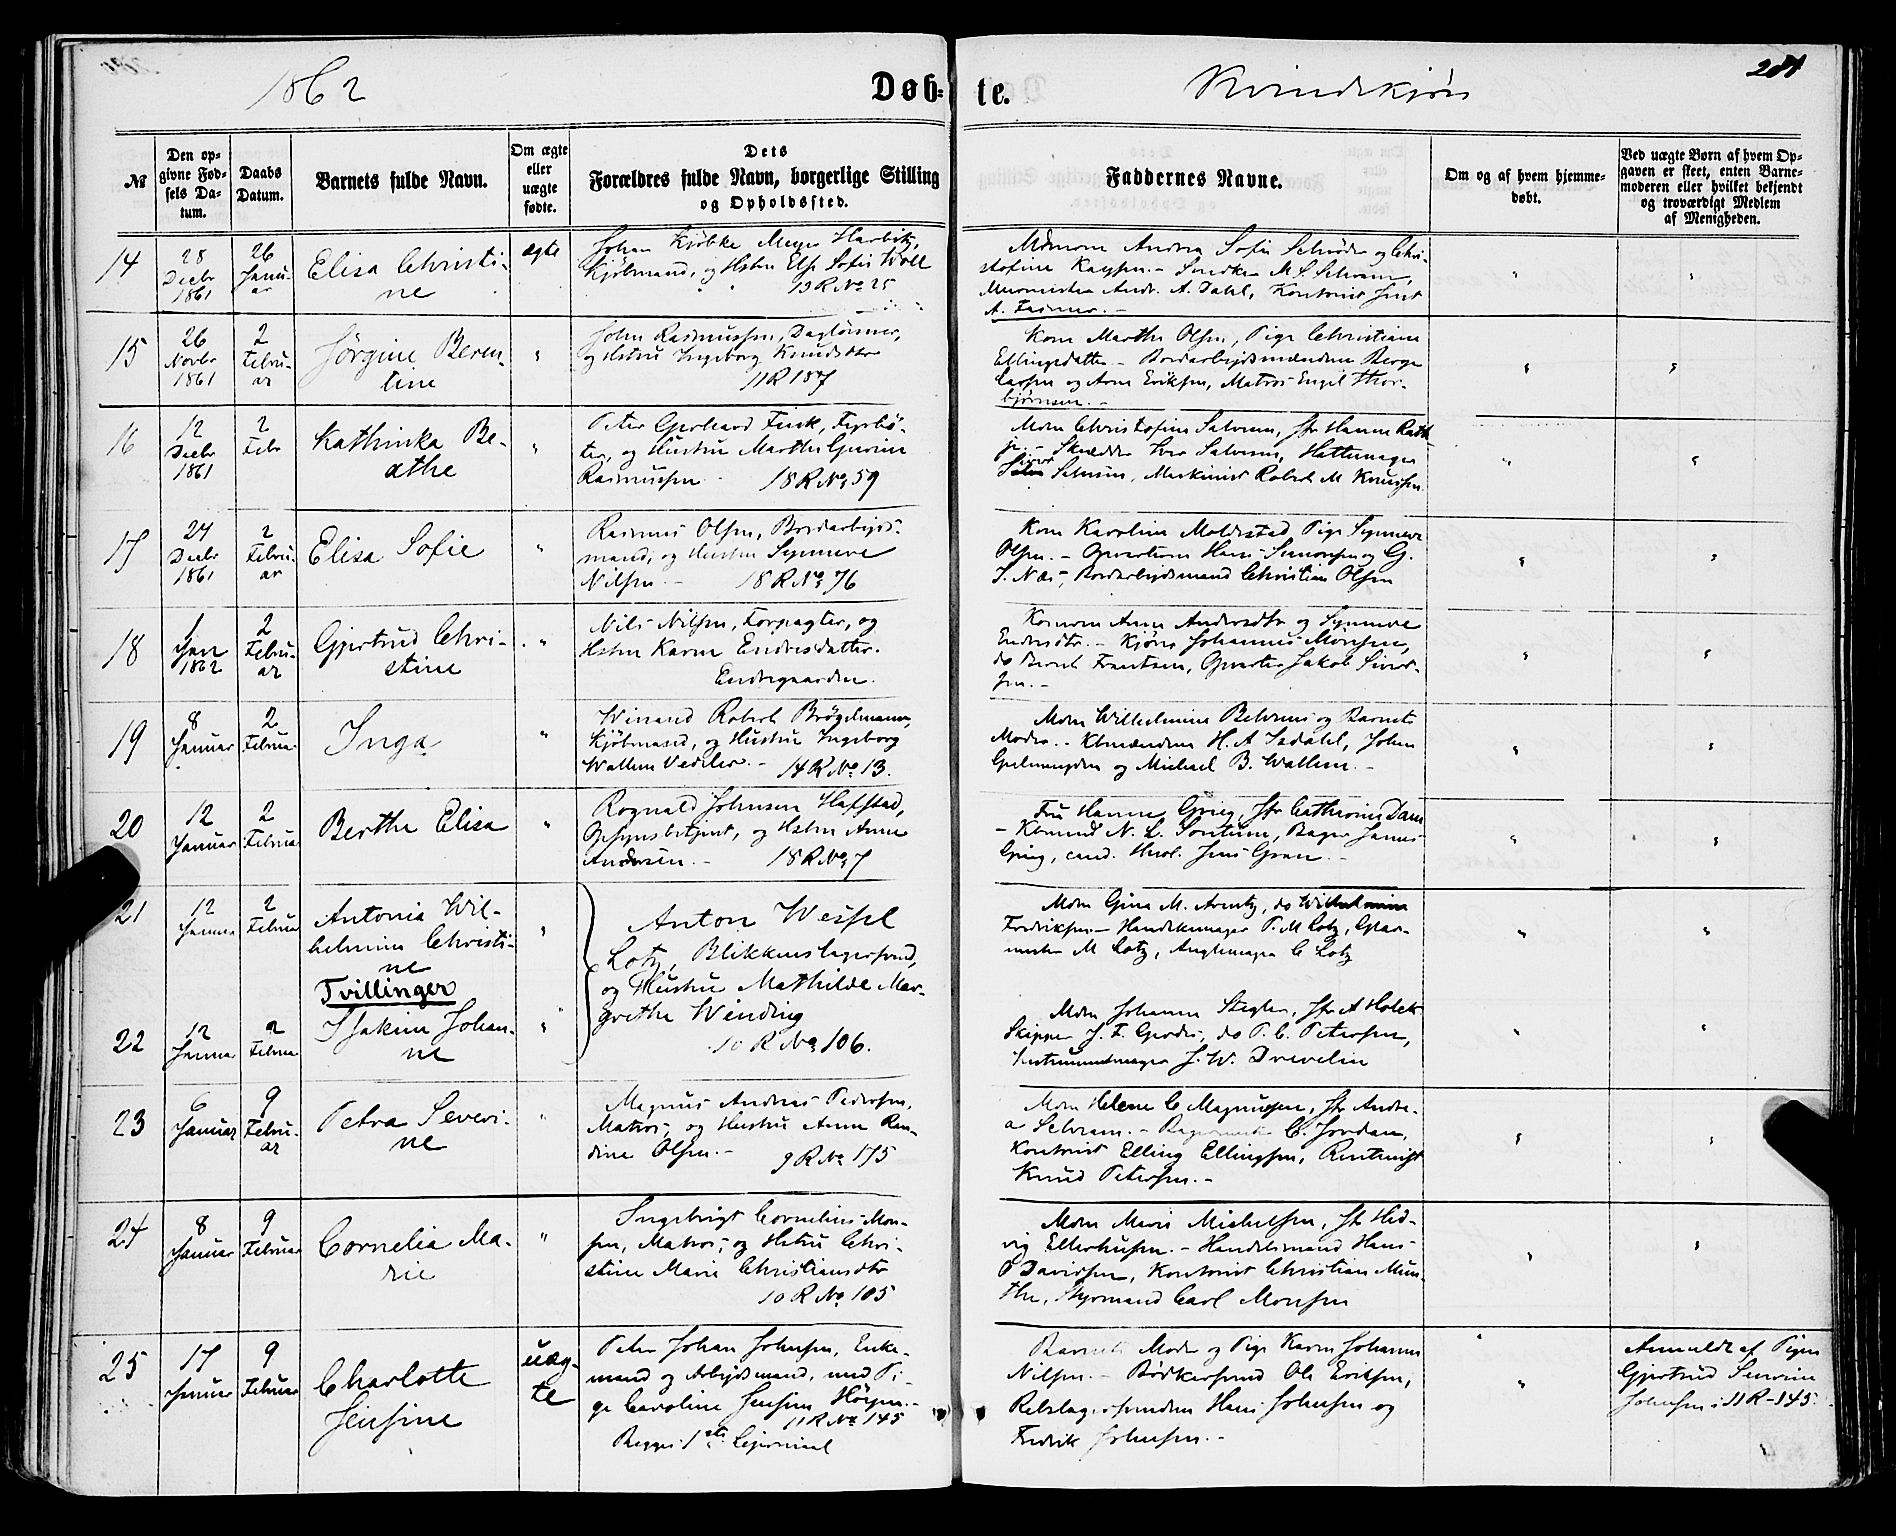 1862
Døb-
te.
Kvindekjøn
281
№
Den op-
givne Fød-
sels Da-
tum.
Daabs
Datum.
Barnets fulde Navn.
Om ægte
eller
uægte
fødte.
Dets
Forældres fulde Navn, borgerlige Stilling
og Opholdssted.
Faddernes Navne.
Om og af hvem hjemme-
døbt.
Ved uægte Børn af hvem Op-
gaven er skeet, enten Barne-
moderen eller hvilket bekjendt
og troværdigt Medlem
af Menigheden.
14
28
Decbr
1861
26
Janu-
ar
Elisa Christi-
ne
ægte
Johan Kjøbke Meyer Harbitz,
Kjøbmand, og Hstru Else Sofie Woll
13 R No 25
Andrea Sofie Schrøder og Chri-
stofine M. S. Schram,
Muurmester Andr. A. Dahl, Kontorist
15
26
Novbr
1861
2
Febru-
ar
Jørgine Beren-
tine
"
John Rasmussen, Daglønner,
og Hstru Ingeborg Knudsdtr
11 R 187
Kone Marthe Olsen, Pige Christiane
Ellingsdatter - Bordarbejdsmændene Berge
Larsen og Arne Eriksen, Matros Engel Thor-
bjørnsen. -
16
12
Decbr
1861
2
Febr
Kathinka Be-
athe
"
Peter Gerhard Fink, Fyrbø-
ter, og Hustru Marthe Gurine
Rasmussen 18 R No 59
Mdm Christofine Salvesen, Jfr Hanne
Skrædder Iver Salvesen, Hattemager
Maskinist Robert M. Knudsen
17
24
Decbr
1861
2
Febru-
ar
Elisa Sofie
"
Rasmus Olsen, Bordarbejds-
mand, og Hustru Synneve
Nilsen. - 18 R No 76
Kone Karoline Moldestad Pige Synneve
Olsen. - Opvarterne Hans Simonsen og G.
J. Næs, Bordarbejdsmand Christian Olsen
18
1
Jan
1862
2
Febru-
ar
Gjertrud Chri-
stine
"
Nils Nilsen, Forpagter, og
Hstru Karen Endresdatter.
Endregaarden.
Konerne Anna Andersdtr og Synneve
Endresdtr. - Kjører Johannes Monsen,
do Bernt Frantsen, Opvarter Jakob Siver-
sen. -
19
8
Januar
2
Februar
Inga
"
Winand Robert Brøgelmann,
Kjøbmand, og Hustru Ingeborg
Wallem Vedeler. - 14 R No 13.
Mdm Wilhelmine Behrens og Barnets
Moder. - Kbmændene H. A. Isdahl, Johan
og Michael B. Wallem. -
20
12
Januar
2
Februar
Berthe Elisa
"
Rognald Johnsen Hafstad,
Opsynsbetjent, og Hstru Anne
Andersen. - 18 R No 7
Fru Hanne Grieg, Jfr Cathrine Dam
- Kbmnd N. L. Sontum, Bager James
Grieg, cand. theol. Jens Gran. -
21
12
Januar
2
Februar
Antonia Wil-
helmine Christi-
ne
Tvillinger
"
Anton Wessel
Lotz, Blikkenslagersvend,
og Hustru Mathilde Mar-
grethe Winding
10 R No 106.
Mdm Gina M. Arentz, do Wilhelmine
Fredriksen - Handskemager P. M. Lotz, Glar-
mester M Lotz, C Lotz
22
12
Januar
2
Februar
Hjakine Johan-
ne
"
Mdm Johanne Stegler, Jfr A Holck
Skipper J. F. Gerdes, do P. C. Petersen,
Instrumentmager J. W. Drevelin
23
6
Januar
9
Febru-
ar
Petra Severi-
ne
"
Magnus Andreas Pedersen,
Matros, og Hustru Anne Ran-
dine Olsen. - 9 R No 175
Mdm Helene C Magnussen, Jfr Andre-
a Schram. - C. Jordan,
Kontorist Elling Ellingsen, Rentenist
Knud Petersen. -
24
8
Januar
9
Februar
Cornelia Ma-
rie
"
Ingebrigt Cornelius Mon-
sen, Matros, og Hstru Chri-
stine Marie Christiansdtr
10 R No 105
Mdm Marie Michelsen, Jfr Hed-
vig Ellerhusen. - Handelsmand Hans
O Davidsen, Kontorist Christian Mun-
the, Styrmand Carl Monsen
25
17
Januar
9
Februar
Charlotte
Jensine
uæg-
te
Peter Johan Johnsen, Enke-
mand og Arbejdsmand, med Pi-
ge Caroline Jensine Høyer. -
11 R No 145
Begges 1ste Lejermaal
Barnets Moder og Pige Karen Johanne
Nilsen. - Bødkersvend Ole Eriksen,
Rebslagersvendene Hans Johnsen og
Fredrik Johnsen. -
Anmeldt af Pigen
Gjertrud Severine
Johnsen i 11 R - 145.